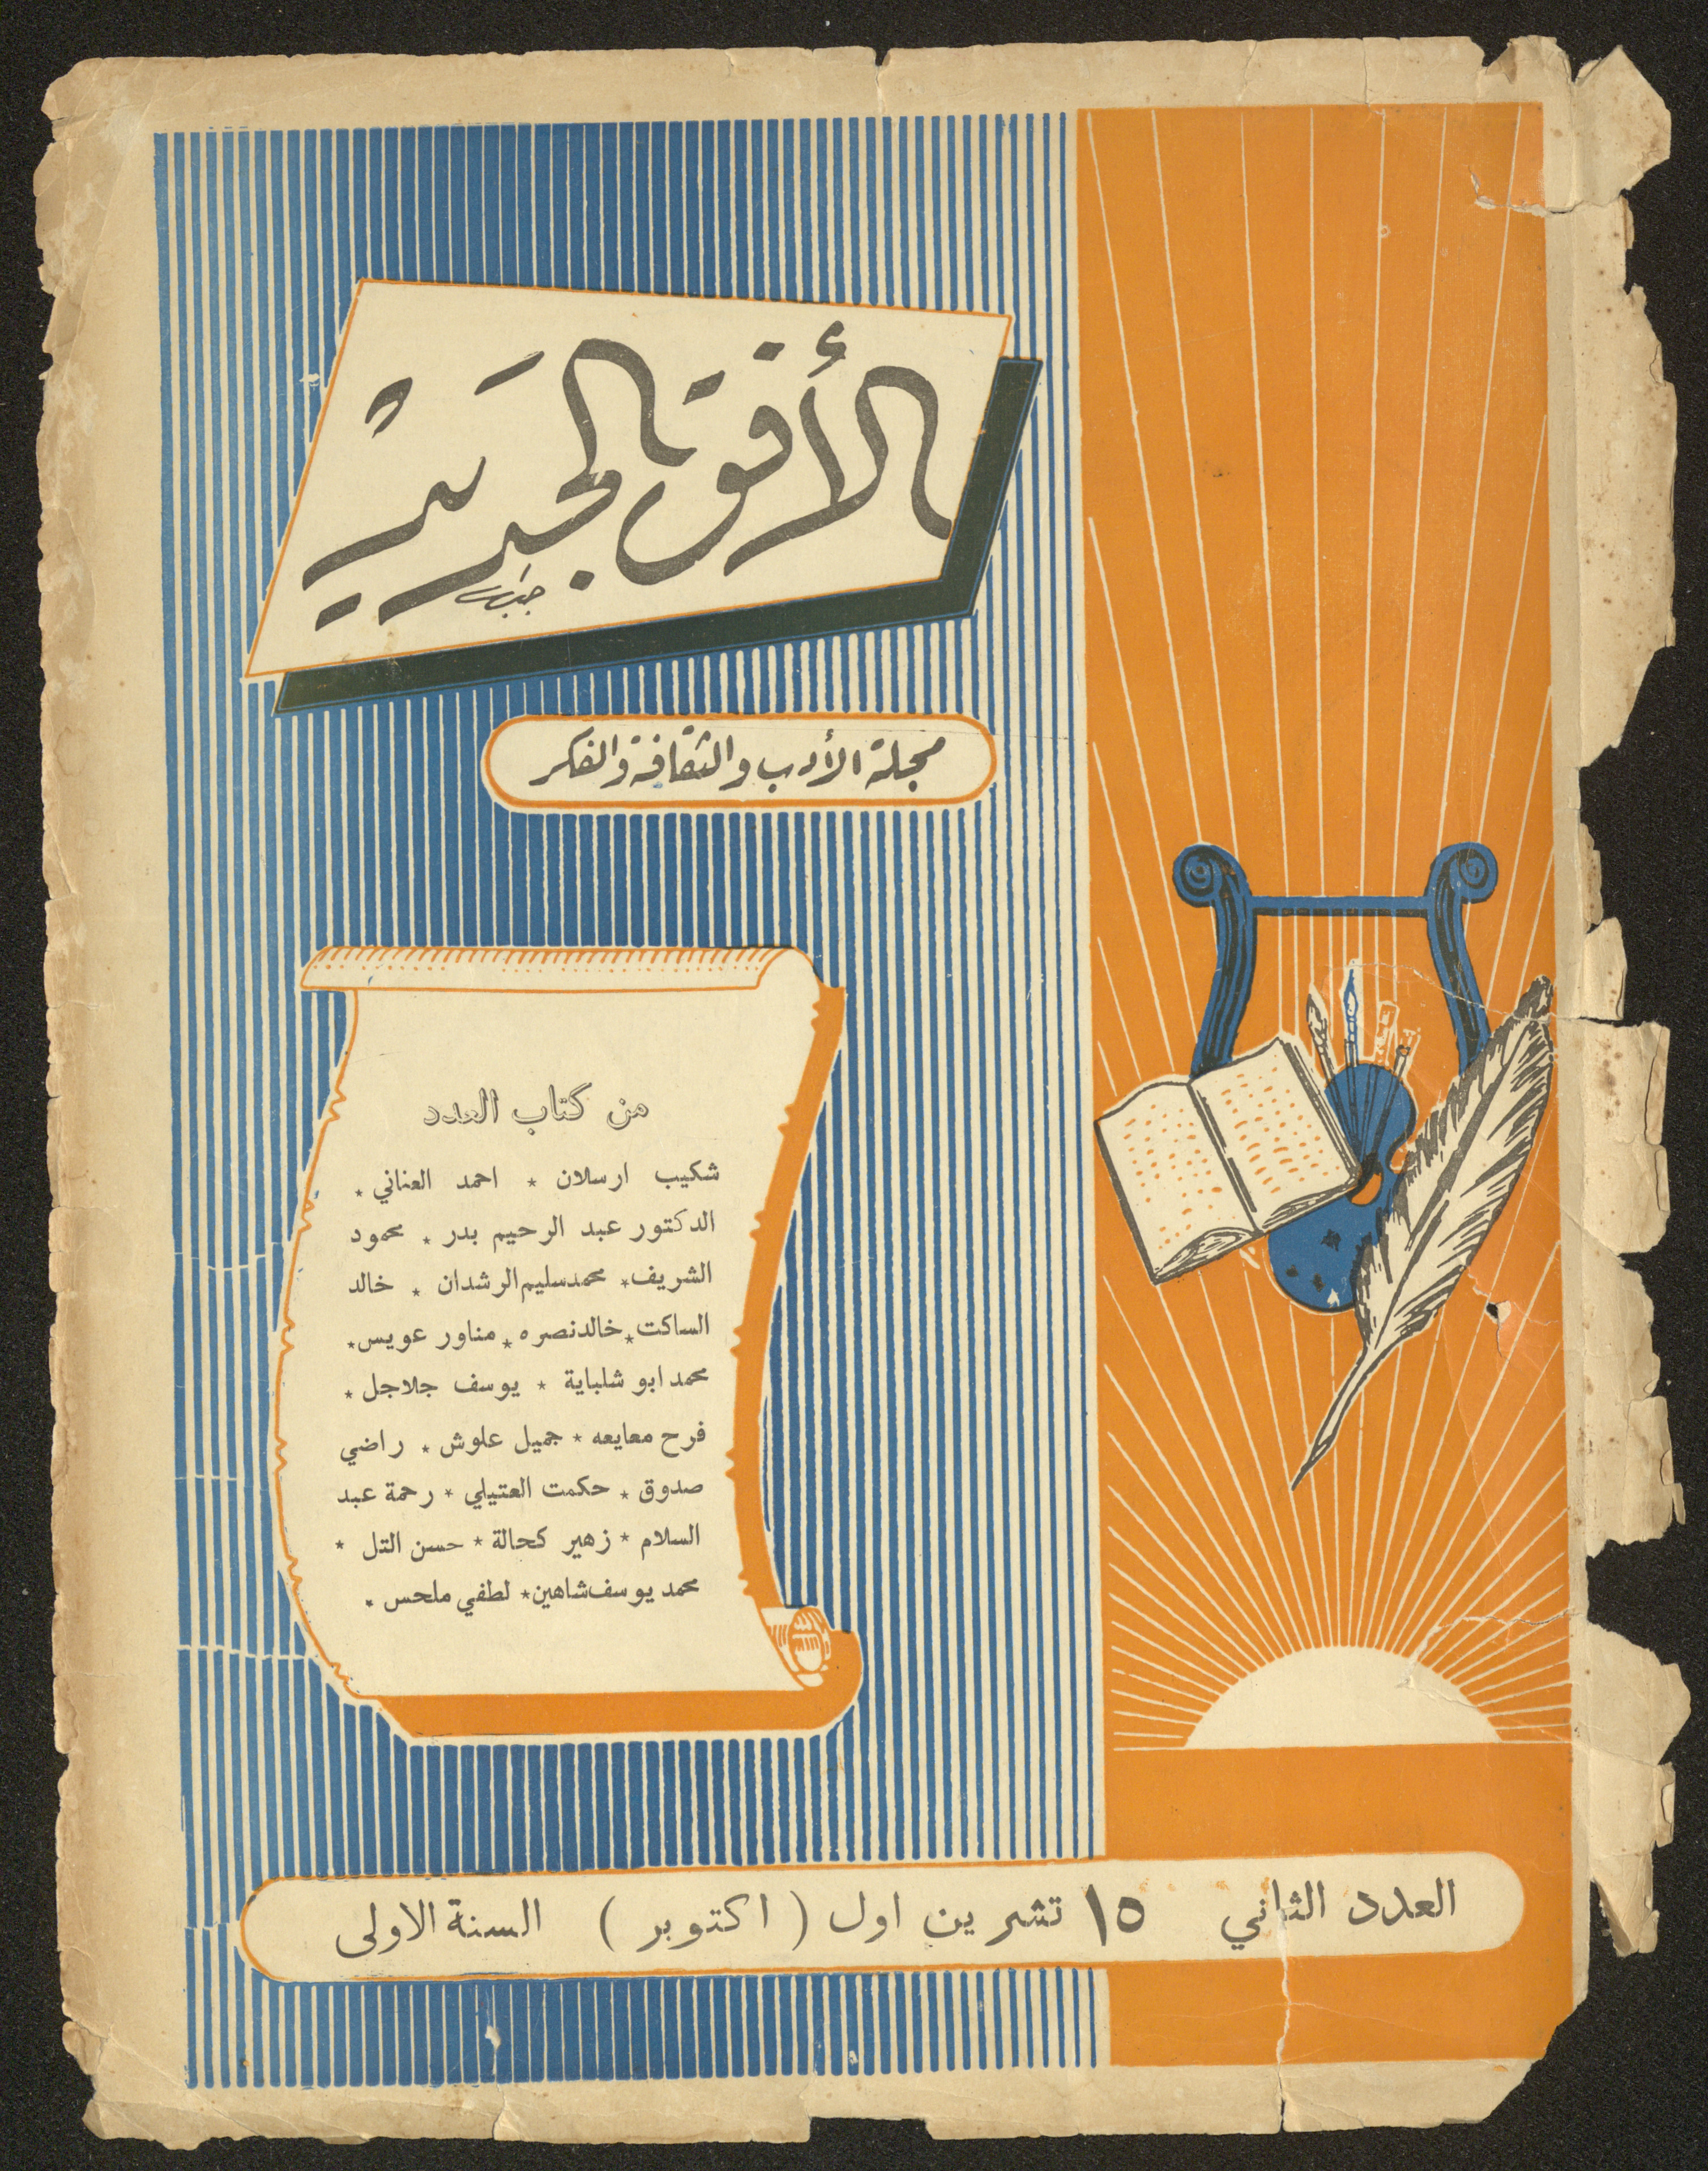 الأفق الجديد
مجلة الأدب والثقافة والفكر
من كتاب العدد
شكيب ارسلان * احمد العناني *
الدكتور عبد الرحيم بدر * محمود
الشريف * محمد سليم الرشدان * خالد
الساكت * خالد نصره * مناور عويس *
محمد ابو شلباية * يوسف جلاجل *
فرح معايعه * جميل علوش * راضي
صدوق * حكمت العتيلي * رحمة عبد
السلام * زهير كحالة * حسن التل *
محمد يوسف شاهين * لطفي ملحس *
العدد الثاني ١٥ تشرين اول ( اكتوبر ) السنة الاولى